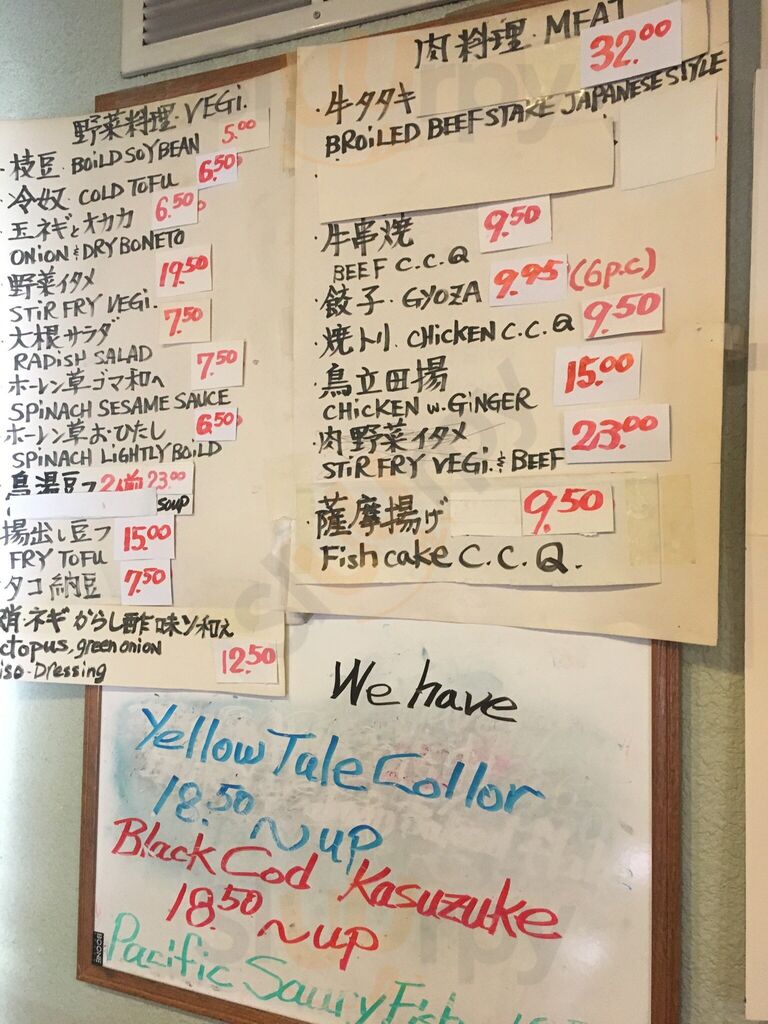 野菜料理・VEGi.
・枝豆・BOiLD SOYBEAN 5.00
・冷奴 COLD TOFU 6.50
・玉ネギとオカカ 6.50
ONiON & DRY BONETO
・野菜イタメ 19.50
STiR FRY VEGi.
・大根サラダ 7.50
RADiSH SALAD
・ホーレン草・ゴマ和へ 7.50
SPiNACH SESAME SAUCE
・ホーレン草お・ひたし 6.50
SPiNACH LiGHTLY BOiLD
・鳥湯豆フ 2人前 23.00
SOUP
・揚出し豆フ 15.00
FRY TOFU
・タコ納豆 7.50
ネギからし酢味ソ和え
ctopus, green onion
iso-Dressing 12.50
肉料理・MEAT
・牛タタキ 32.00
BROiLED BEEF STAKE JAPANESE STYLE
・牛串焼 9.50
BEEF C.C.Q
・餃子・GYOZA 9.95 (6p.c)
・焼トリ CHiCKEN C.C.Q 9.50
・鳥立田揚 15.00
CHiCKEN w.GiNGER
・肉野菜イタメ 23.00
STiR FRY VEGi. & BEEF
・薩摩揚げ 9.50
Fish cake C.C.Q.
We have
Yellow Tale Collor
18.50 ~up
Black Cod Kasuzuke
18.50 ~up
BOONE
Pacific Saury Fish